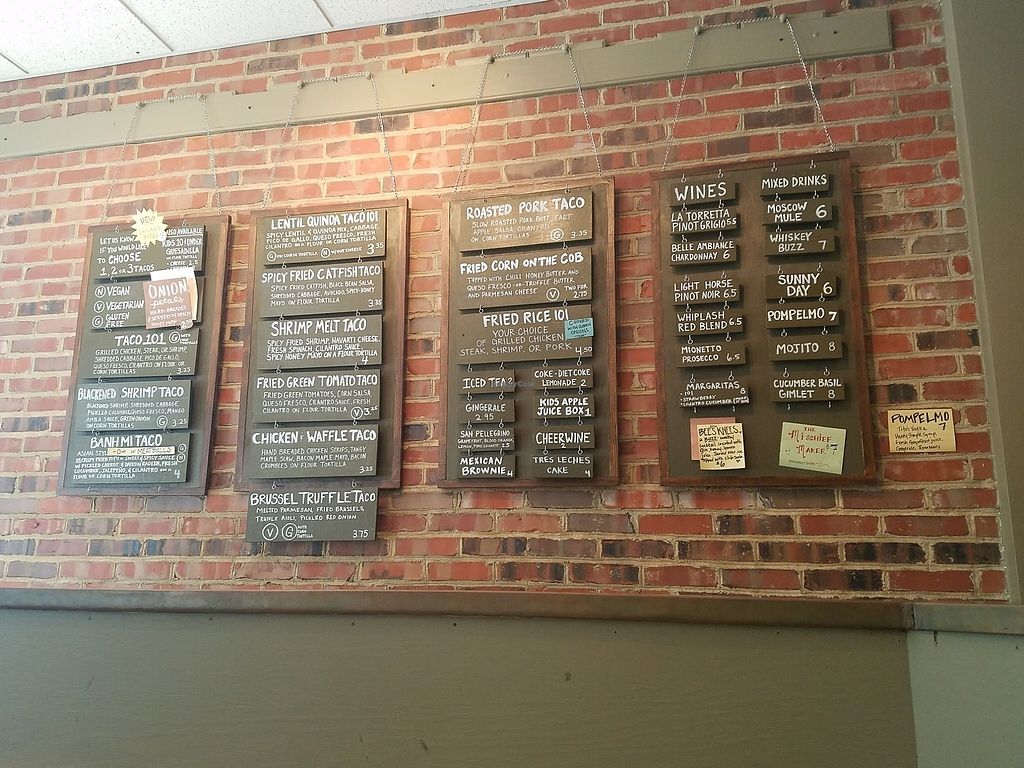 NEW!
LET US KNOW
IF YOU WOULD LIKE
TO CHOOSE
1, 2 OR 3 TACOS
ALSO AVAILABLE
KIDS 10 & UNDER
QUESADILLA
CHEESE
N VEGAN
V VEGETARIAN
G GLUTEN
FREE
ONION
petals
TACO 101 G
GRILLED CHICKEN, STEAK, OR SHRIMP,
SHREDDED CABBAGE, PICO DE GALLO,
QUESO FRESCO, CILANTRO SAUCE ON
CORN TORTILLAS 3.25
BLACKENED SHRIMP TACO
BLACKENED SHRIMP, SHREDDED CABBAGE,
QUESO FRESCO, MANGO
SALSA, GREEN ONION
ON CORN TORTILLAS G 3.25
BANH MI TACO
ASIAN STYLE
W/ PICKLED CARROT & DAIKON RADISH, FRESH
CUCUMBER, JALAPEÑO & CILANTRO ON
FLOUR TORTILLA 4
LENTIL QUINOA TACO 101
SPICY LENTIL & QUINOA MIX, CABBAGE,
PICO DE GALLO, QUESO FRESCO, FRESH
CILANTRO ON A FLOUR OR CORN TORTILLA
G ON CORN TORTILLA N W/OUT CHEESE 3.25
SPICY FRIED CATFISH TACO
SPICY FRIED CATFISH, BLACK BEAN SALSA,
SHREDDED CABBAGE, AVOCADO, SPICY HONEY
MAYO ON FLOUR TORTILLA 3.25
SHRIMP MELT TACO
SPICY FRIED SHRIMP, HAVARTI CHEESE,
FRESH SPINACH, CILANTRO SAUCE,
SPICY HONEY MAYO ON A FLOUR TORTILLA 4
FRIED GREEN TOMATO TACO
FRIED GREEN TOMATOES, CORN SALSA,
QUESO FRESCO, CILANTRO SAUCE, FRESH
CILANTRO ON FLOUR TORTILLA V 3.25
CHICKEN & WAFFLE TACO
HAND BREADED CHICKEN STRIPS, TANGY
MAPLE SLAW, BACON MAPLE MAYO, BACON
CRUMBLES ON FLOUR TORTILLA 3.25
BRUSSEL TRUFFLE TACO
MELTED PARMESAN, FRIED BRUSSELS,
TRUFFLE AIOLI, PICKLED RED ONION
V G W/ CORN TORTILLA 3.75
ROASTED PORK TACO
SLOW ROASTED PORK BUTT, TART
APPLE SALSA, CILANTRO
ON CORN TORTILLAS G 3.25
FRIED CORN ON THE COB
TOPPED WITH CHILI HONEY BUTTER, AND
QUESO FRESCO -OR- TRUFFLE BUTTER
AND PARMESAN CHEESE V TWO FOR 2.75
FRIED RICE 101
YOUR CHOICE
OF GRILLED CHICKEN,
STEAK, SHRIMP, OR PORK 4.50
ICED TEA 2
GINGERALE
2.95
SAN PELLEGRINO
MEXICAN
BROWNIE 4
COKE-DIET COKE
LEMONADE 2
KIDS APPLE
JUICE BOX 1
CHEERWINE
TRES LECHES
CAKE 4
WINES
LA TORRETTA
PINOT GRIGIO 5.5
BELLE AMBIANCE
CHARDONNAY 6
LIGHT HORSE
PINOT NOIR 6.5
WHIPLASH
RED BLEND 6.5
MIONETTO
PROSECCO 6.5
MARGARITAS 8
-101
-STRAWBERRY
-CILANTRO CUCUMBER
BEE'S KNEES
6
MIXED DRINKS
MOSCOW
MULE 6
WHISKEY
BUZZ 7
SUNNY
DAY 6
POMPELMO 7
MOJITO 8
CUCUMBER BASIL
GIMLET 8
THE
MISCHIEF
MAKER 7
POMPELMO
7
Tito's Vodka,
Honey Simple Syrup,
Fresh Grapefruit juice